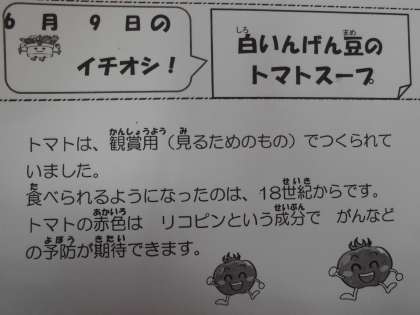 6月9日の
イチオシ！
白いんげん豆の
トマトスープ
トマトは、観賞用（見るためのもの）でつくられて
いました。
食べられるようになったのは、18世紀からです。
トマトの赤色は リコピンという成分で がんなど
の予防が期待できます。